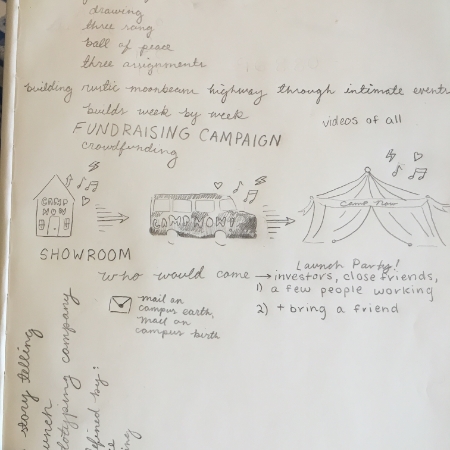 drawing
three song
ball of peace
three assignments
building rustic moonbeam highway through intimate events
builds week by week
videos of all
FUNDRAISING CAMPAIGN
crowdfunding
CAMP NOW
CAMP NOW!
Camp Now
SHOWROOM
Launch Party!
who would come → investors, close friends,
1) a few people working
2) + bring a friend
mail on
campus earth,
mail on
campus birth
story telling
company
defined by: